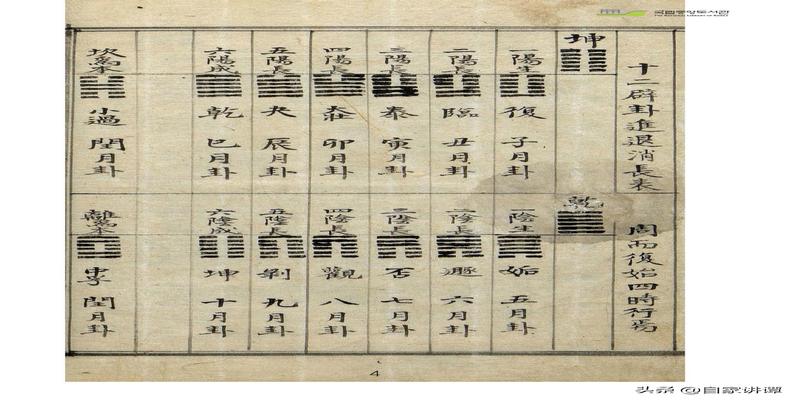 국립중앙도서관
The National Library of Korea
十二辟卦進退消長表 周而復始四時行焉
坤
一陽生 復 子月卦
二陽長 臨 丑月卦
三陽長 泰 寅月卦
四陽長 大壯 卯月卦
五陽長 夬 辰月卦
六陽成 乾 巳月卦
坎為本 小過 閏月卦
乾
一陰生 姤 五月卦
二陰長 遯 六月卦
三陰長 否 七月卦
四陰長 觀 八月卦
五陰長 剝 九月卦
六陰成 坤 十月卦
離為本 中孚 閏月卦
4
头条 @自家讲谭